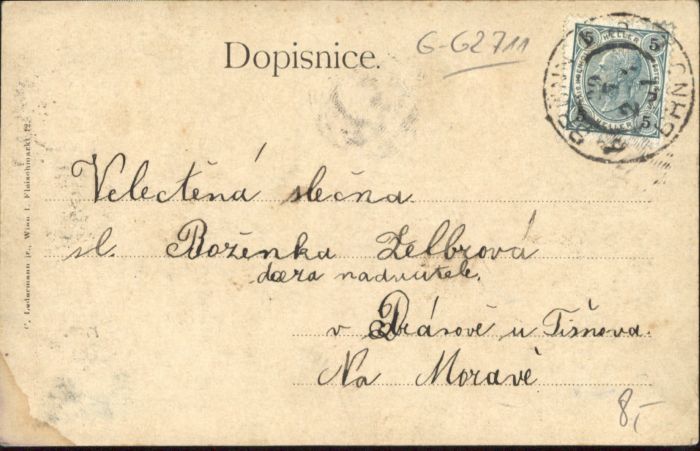 Dopisnice.
G-G2711
5 HELLER 5
BRÜNN BRNO
Velectěná slečna
sl. Boženka Zelbrová
dcera nadučitele.
v Drásově u Tišnova.
Na Moravě
8,-
C. Ledermann jr., Wien I. Fleischmarkt 12.